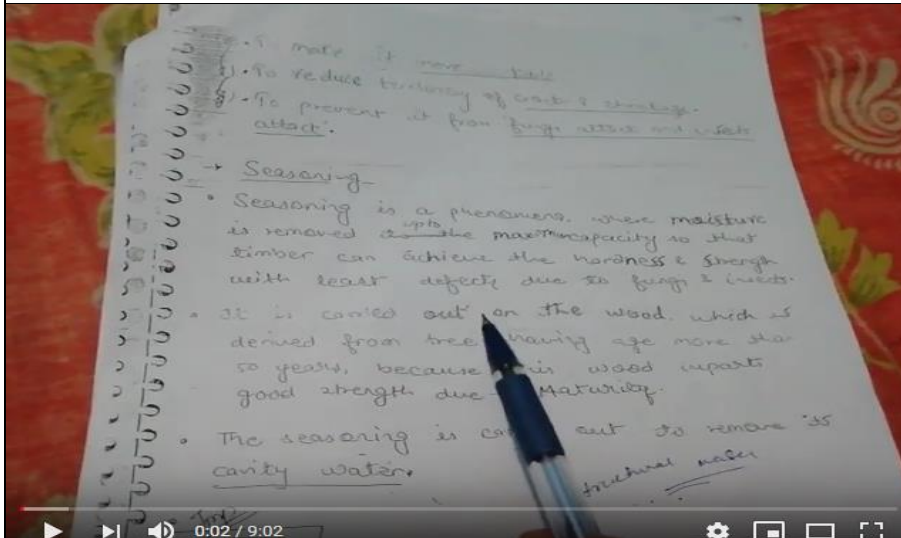 make it
2). To reduce tendency of crack & shrinkage.
3). To prevent it from fungi attack and insects
attack.
→ Seasoning
• Seasoning is a phenomena. where moisture
is removed upto the maximum capacity so that
timber can achieve the hardness & strength
with least defects due to fungi & insects.
• It is carried out on the wood. which is
derived from tree having age more than
50 years, because this wood imparts
good strength due Maturity.
• The seasoning is out to remove its
cavity water.
structural water
0:02 / 9:02